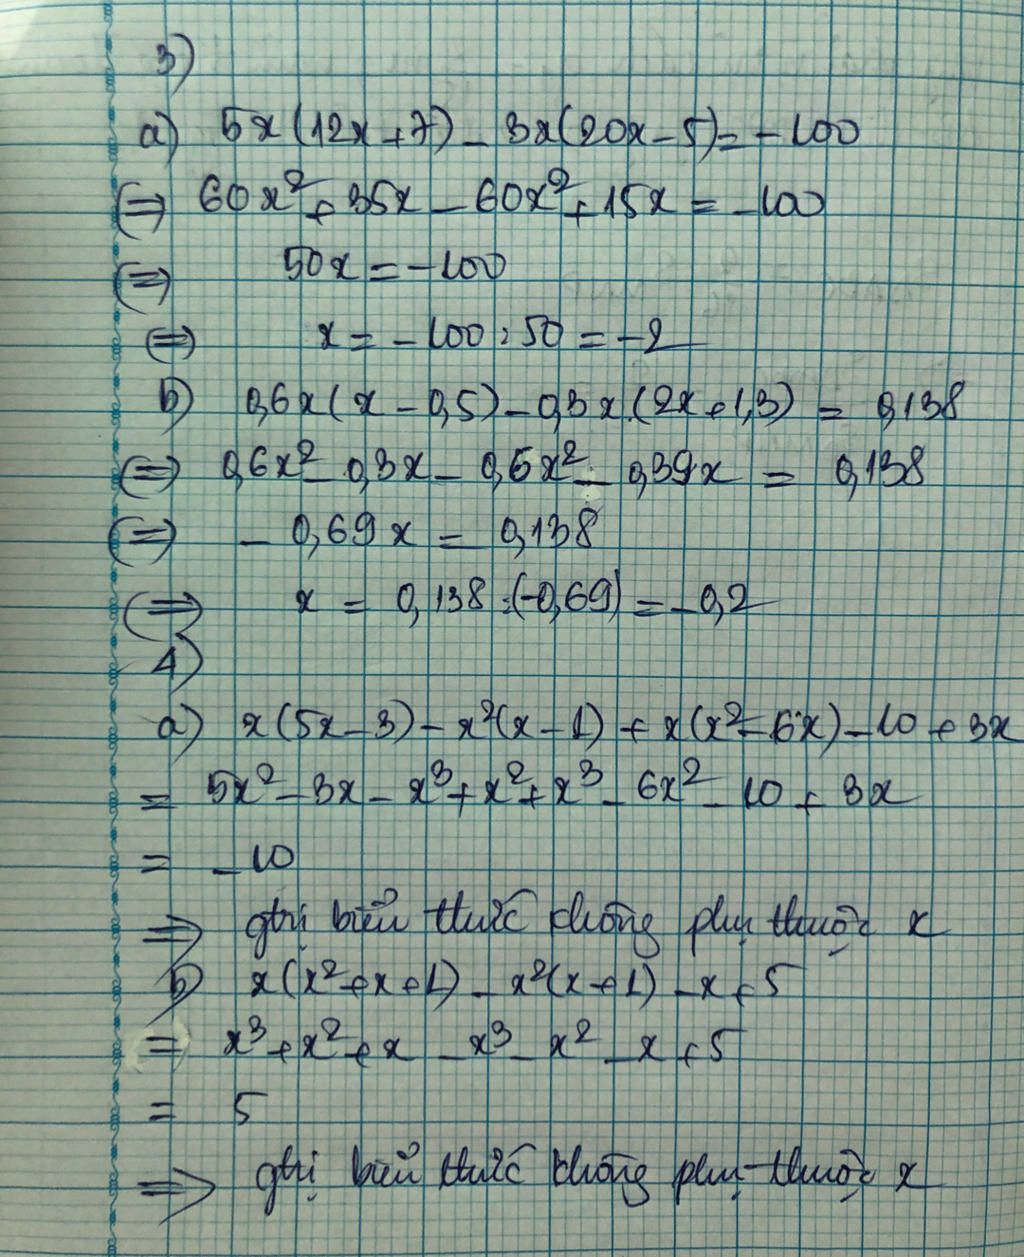 3)
a) 5x(12x+7) - 3x(20x-5) = -100
(=) 60x² + 35x - 60x² + 15x = -100
(=) 50x = -100
(=) x = -100 : 50 = -2
b) 0,6x(x - 0,5) - 0,3x.(2x+1,3) = 0,138
(=) 0,6x² - 0,3x - 0,6x² - 0,39x = 0,138
(=) - 0,69x = 0,138
(=) x = 0,138 : (-0,69) = -0,2
4)
a) x(5x-3) - x²(x-1) + x(x²-6x) - 10 + 3x
= 5x² - 3x - x³ + x² + x³ - 6x² - 10 + 3x
= -10
=> gtrị biểu thức không phụ thuộc x
b) x(x²+x+1) - x²(x+1) - x + 5
= x³ + x² + x - x³ - x² - x + 5
= 5
=> gtrị biểu thức không phụ thuộc x